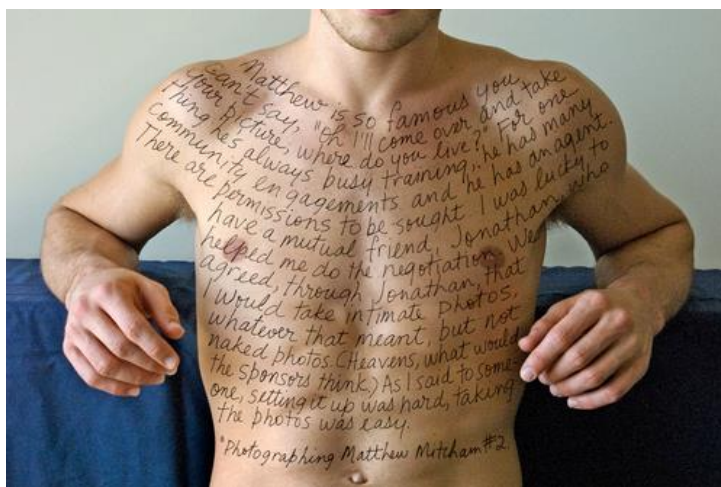 Matthew is so famous you
can't say, "Oh I'll come over and take
your picture, where do you live?" For one
thing he's always busy training, he has many
community engagements and he has an agent.
There are permissions to be sought. I was lucky to
have a mutual friend, Jonathan, who
helped me do the negotiation. We
agreed, through Jonathan, that
I would take intimate photos,
whatever that meant, but not
naked photos. (Heavens, what would
the sponsors think.) As I said to some-
one, setting it up was hard, taking
the photos was easy.
"Photographing Matthew Mitcham #2.